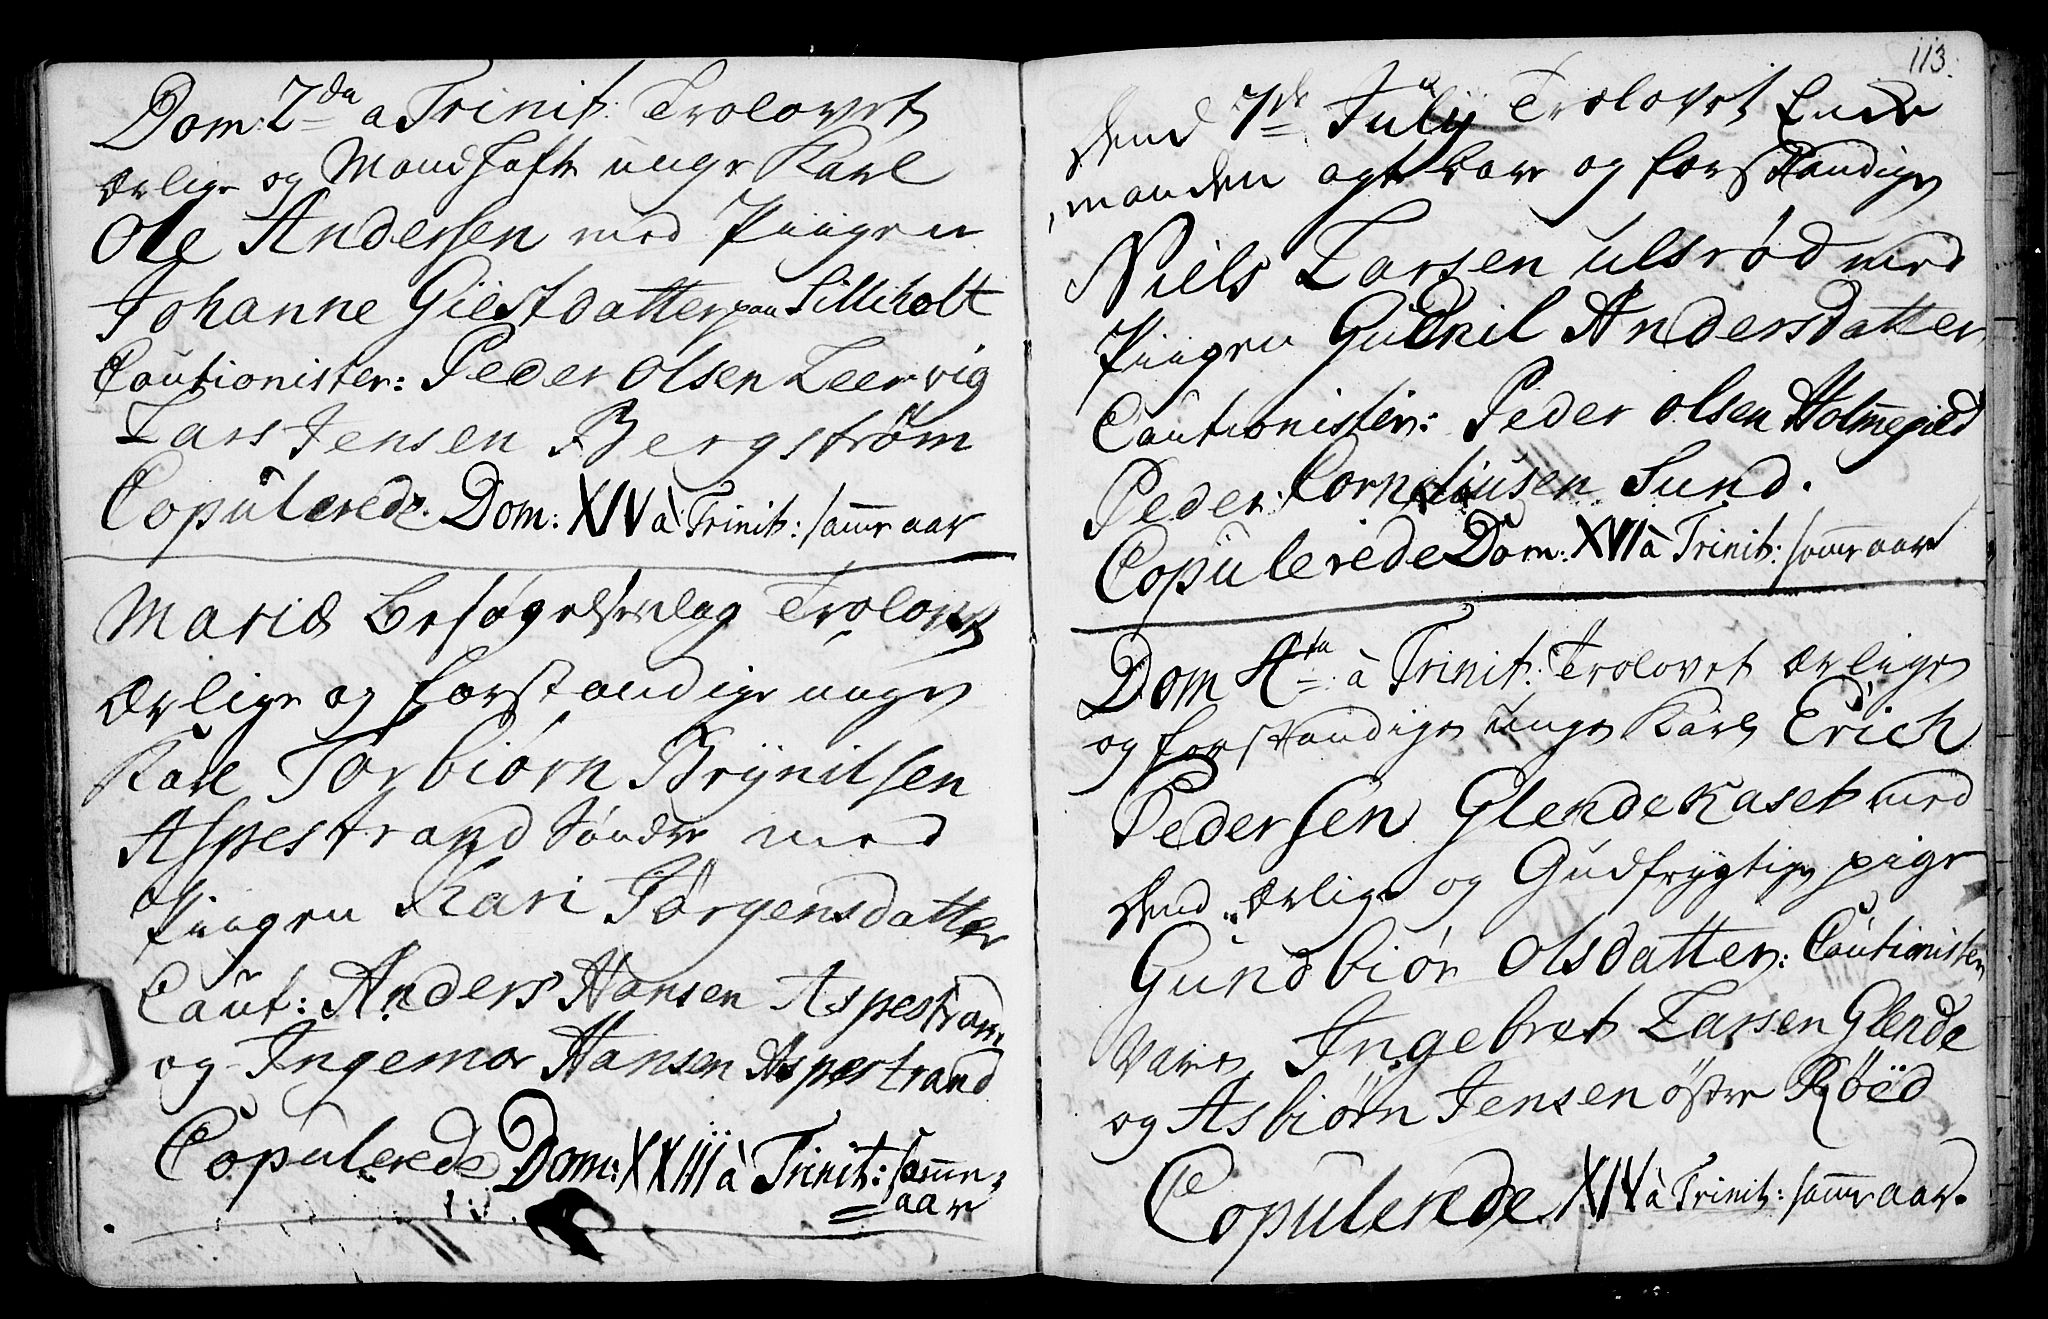 Dom: 2da a Trinit: Trolovet
Ærlige og Mandhafte unge Karl
Ole Andersen med Piigen
Johanne Giestdatter paa Silleholt
Cautionister: Peder Olsen Leervig
Lars Jensen Bergström
Copulerede. Dom: XIV à Trinit: samme aar
Mariæ Besøgelsesdag Trolovet
Ærlige og forstandige unge
Karl Torbiørn Brÿnilsen
Aspestrand Søndre med
Piigen Kari Jørgensdatter
Caut: Anders Hansen Aspestrand
og Ingemor Hansen Aspestrand
Copulerede Dom: XXIII à Trinit: samme
aar
113.
Dend 7de Julÿ Trolovet Enke
manden agtbare og forstandige
Niels Larsen Ulsrød med
Piigen Gunnil Andersdatter
Cautionister: Peder Olsen Holmegiled
Peder Corneliusen Sund.
Copulerede Dom: XVI à Trinit: samme aar
Dom 4ta à Trinit: Trolovet ærlige
og forstandige unge Karl Erich
Pedersen Glendekaset med
Dend ærlige og Gudfrygtige pige
Gundbiør Olsdatter: Cautionister
Vare, Ingebret Larsen Glende
og Asbiørn Jensen østre Röed
Copulerede XIV à Trinit: samme aar.